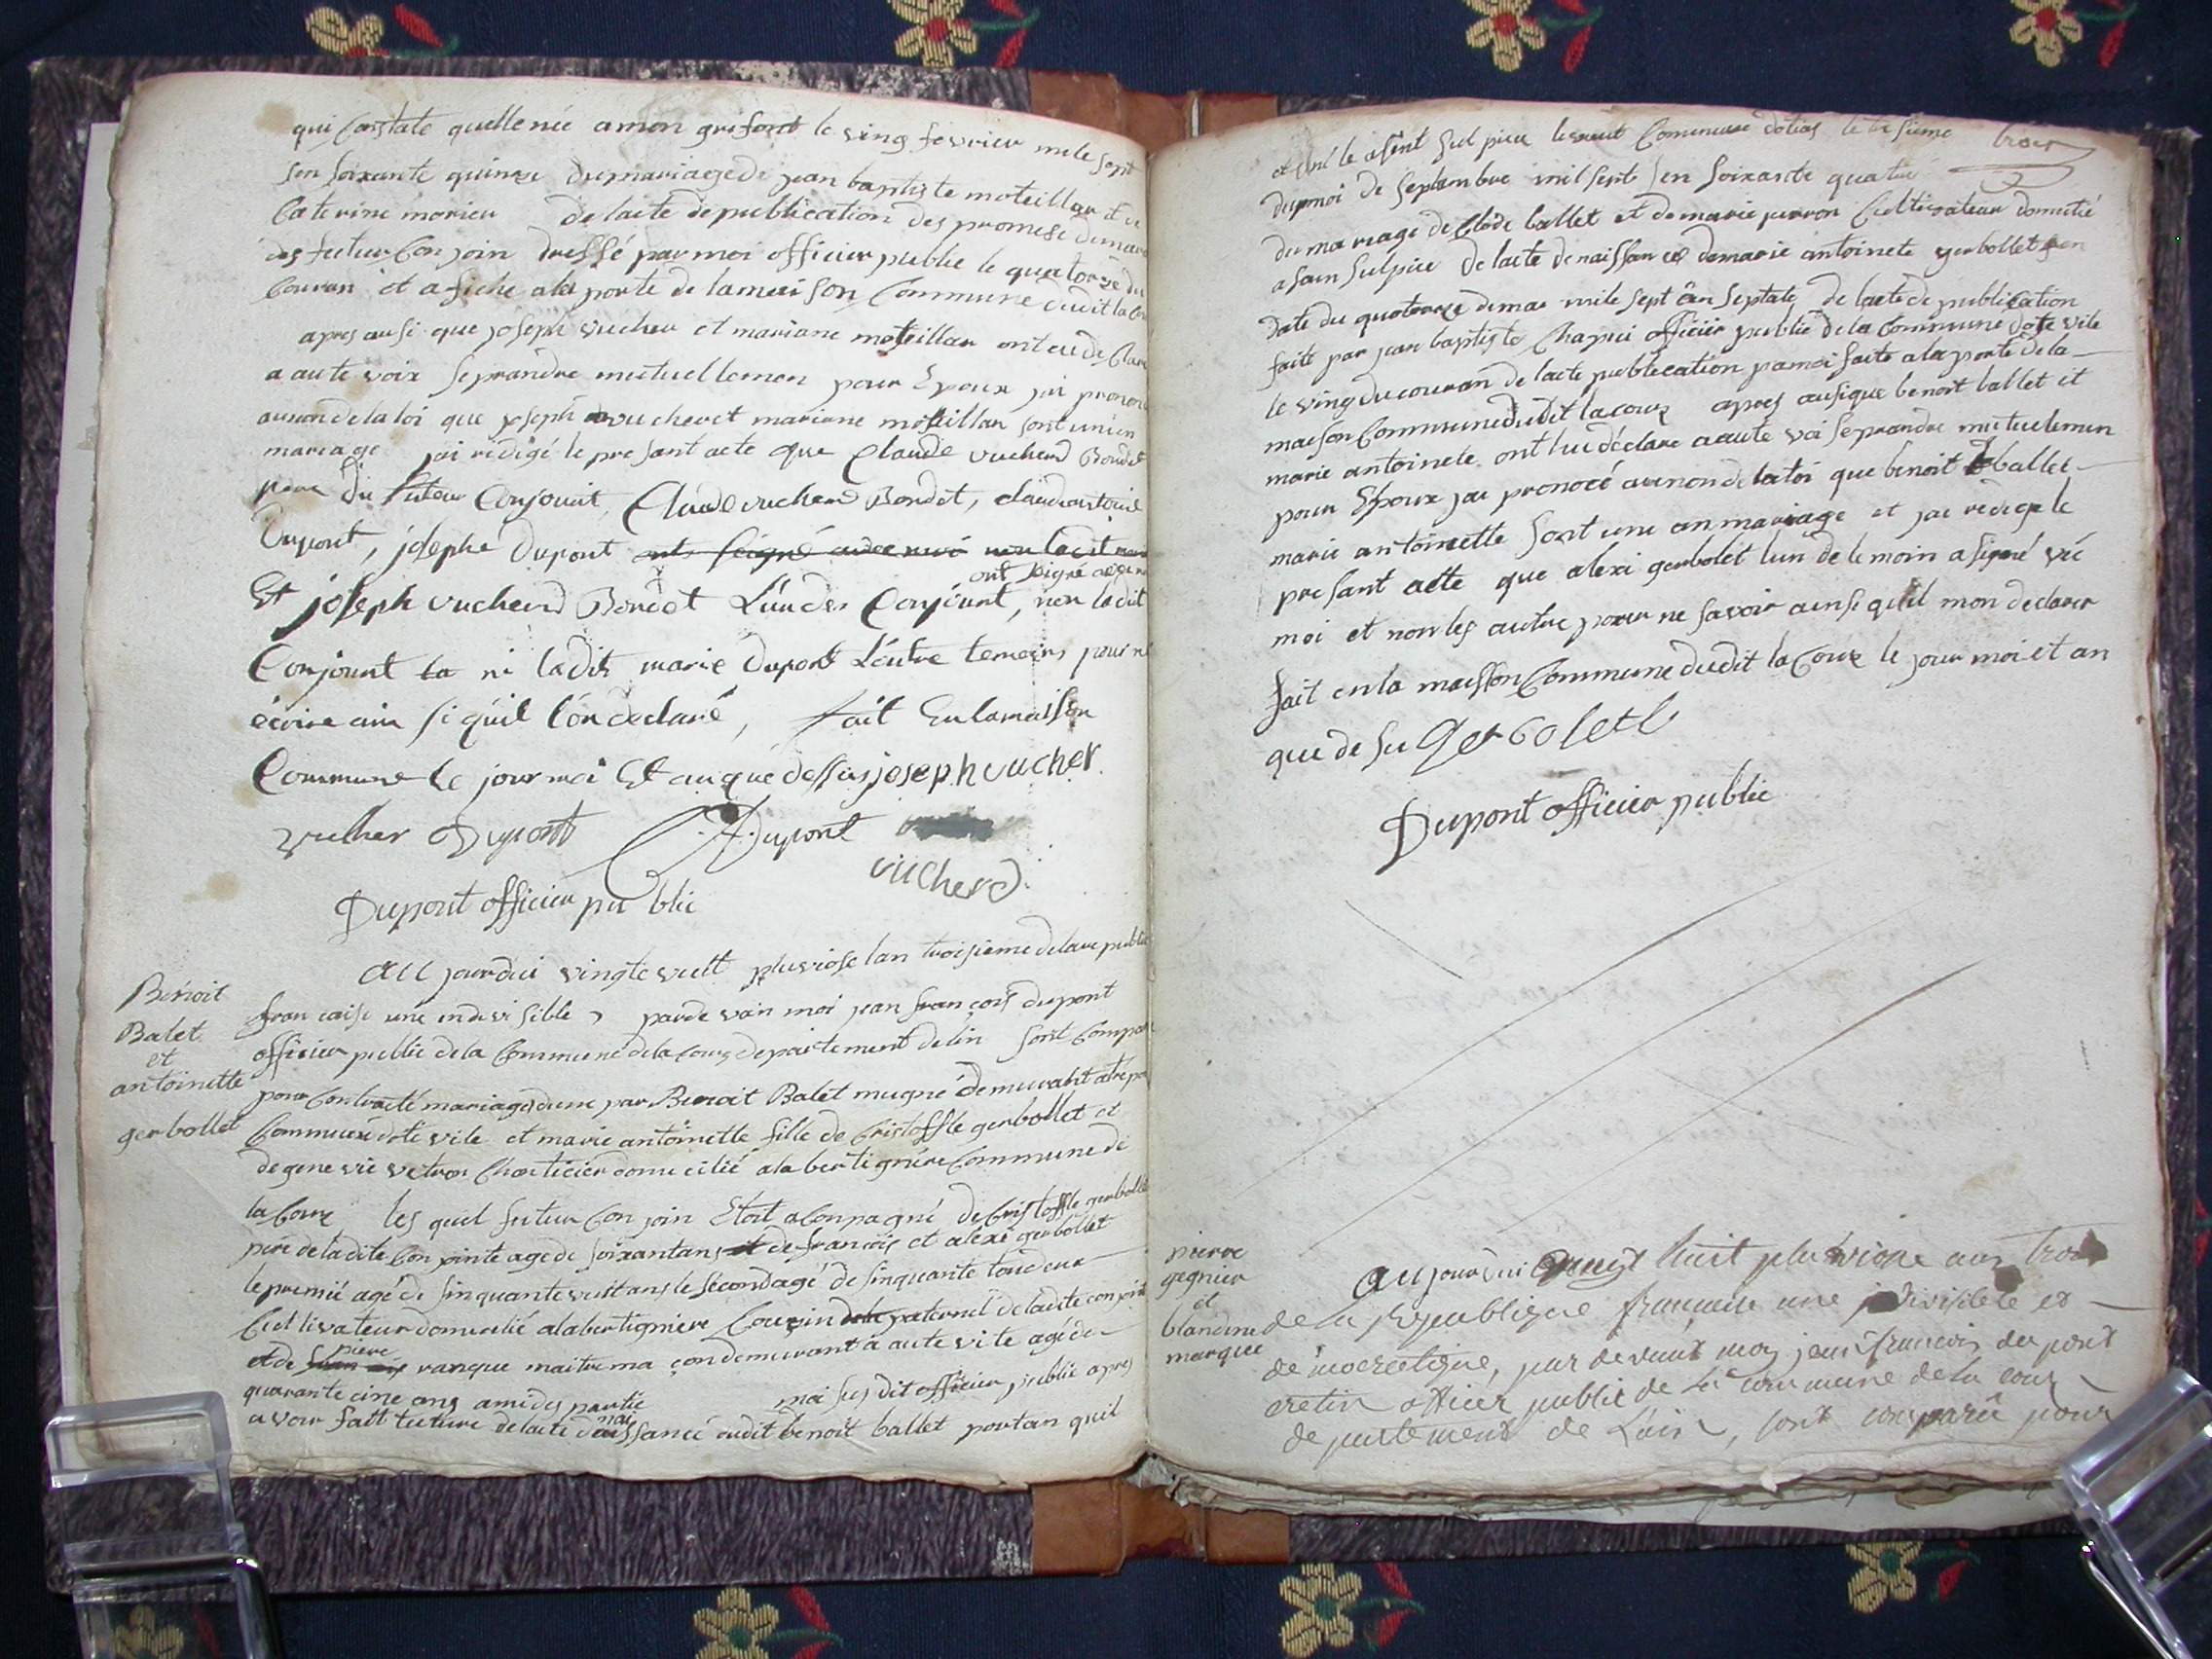 qui Constate quellenée a mon grifont le ving fevrier mile sept
sen soixante quinze dumariagede jean baptiste moteillar et de
Caterine morieu de lacte depublication des promese demaria
des futeur Con join dressé par moi officier public le quatorze du
Couran et afiche ala porte de lameison Commune dudit la Cou
apres ausi que joseph vucher et mariane moteillar ont eu de Clare
a aute voix seprandre mutuellemen pour Epoux jai prononc
aunondelaloi que joseph vucher et mariane moteillar sont uni en
mariage jai rédigé le presant acte que Claude vucherd Bondet
pere du futeur Conjouint, Claude vucherd Bondet, claudantoine
Dupont, josephe Dupont ont seigné avec moi non ladit
ont seigné avec moi
Et joseph vucherd Bondet L'un des Conjoint, non ladit
Conjoint la ni ladit marie Dupont L'autre temoins pour ne
écrire ain si qu'il l'on declaré, fait En lamaison
Commune le jour moi Et an que dessus joseph vucher
vucher Dupont Dupont
vucherd
Dupont officier pu blic
Au jourdui vingte vuit pluviose lan troisieme delare publi
Benoit
Balet
et
antoinette
gerbollet
francaise une indevisible, parde van moi jean françois dupont
officier public dela Commune dela Coux departement delin sont Compar
pour Contracté mariage dune par Benoit Balet mugné demurant
Commune dote vile et marie antoinette fille de Cristoffle gerbollet et
de gene vie vetron Charticier domicilié ala bertignière Commune de
la Coux les quel futeur Con join Etoit aConpagné de Cristoffle gerbollet
pere de ladite Con jointe age de soixantans et de françois et aléxi gerbollet
le premié agé de sinquante vuit ans le second agé de sinquante tou deux
Cultivateur domicilié alabertignière Cousin paternel de ladite con joint
et de piere ranque maitre ma çon demurant a aute vile agé de
quarante cinc ans ami des partie moi sus dit officier public apres
avoir fait lecture delacte denaissance dudit benoit ballet portan quil
trois
et né le a sint sul pice Commune le trisieme
du moi de septembre mil sept sen soixante quatre
du mariage de Clode ballet et de marie perron Cultivateur domicilié
a sain sulpice de lacte denaissance demarie antoinete gerbollet en
date du quatorze demar mile sept cen septate de lacte de publication
faite par jean baptiste Chapui officier public de la Commune dote vile
le ving du couran de lacte publication pamoi faite ala porte de la
maison Commune dudit la Coux apres ausi que benoit ballet et
marie antoinete ont déclare a aute voi seprandre mutuelemen
pour Epoux jai pronocé aunon de la loi que benoit ballet
marie antoinette sont uni an mariage et jai rédige le
presant acte que alexi gerbolet lun de te moin a signé vec
moi et non les autre pour ne savoir ainsi quil mon declarer
fait en la maison Commune dudit la Coux le jour moi et an
que de su Gerbolett
Dupont officier public
pierre
gegnier
et
blandine
marquee
Au jourdui vingt huit pluviose an trois
de la Republique francaise une indivisible et
démocratique, par devant moy jean françois du pont
cretin officier public de la commune de la coux
departement de L'ain, sont comparû pour